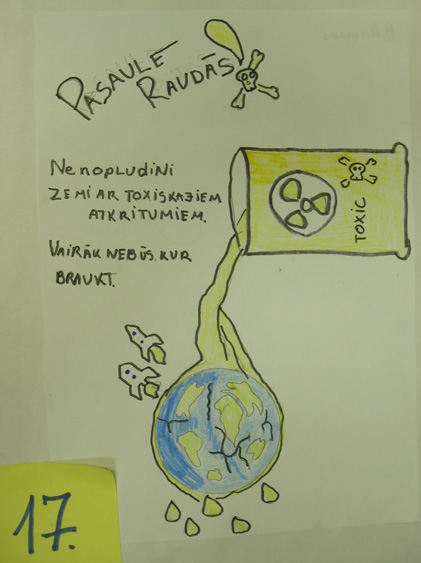 PASAULE
RAUDĀS
NENOPLUDINI
ZEMI AR TOXISKAJIEM
ATKRITUMIEM.
VAIRĀK NEBŪS KUR
BRAUKT.
TOXIC
17.